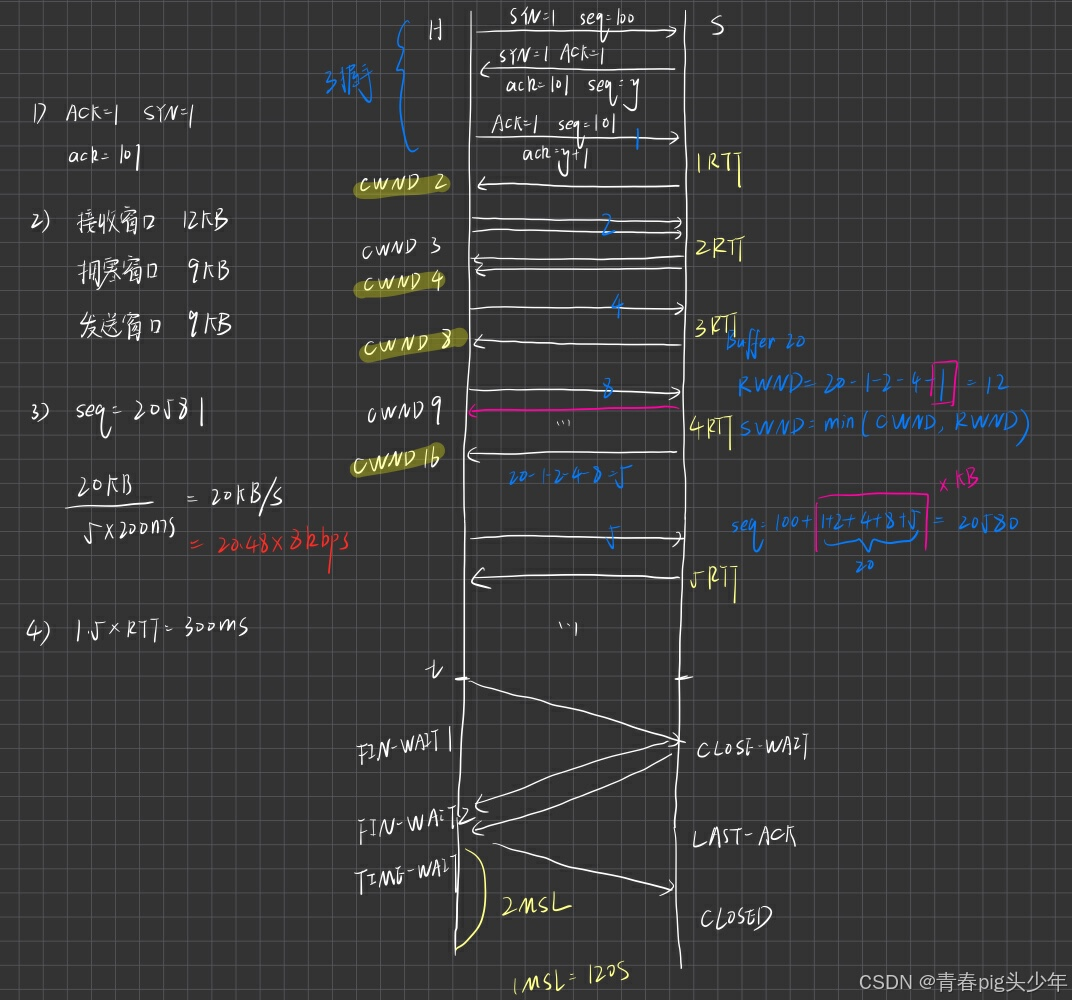 H
SYN=1 seq=100
S
SYN=1 ACK=1
ack=101 seq=y
3握手
ACK=1 seq=101
1
ack=y+1
1RTT
1) ACK=1 SYN=1
ack=101
CWND 2
2) 接收窗口 12KB
拥塞窗口 9KB
发送窗口 9KB
2
CWND 3
2RTT
CWND 4
4
3RTT
CWND 8
Buffer 20
8
RWND=20-1-2-4-1=12
3) seq=20581
CWND 9
...
4RTT
SWND=min(CWND, RWND)
CWND 16
20-1-2-4-8=5
20KB
5×200ms
= 20KB/s
= 20.48×8kbps
×KB
seq=100+1+2+4+8+5=20580
20
5
5RTT
4) 1.5×RTT=300ms
...
t
FIN-WAIT1
CLOSE-WAIT
FIN-WAIT2
LAST-ACK
TIME-WAIT
2MSL
CLOSED
1MSL=120S
CSDN @青春pig头少年